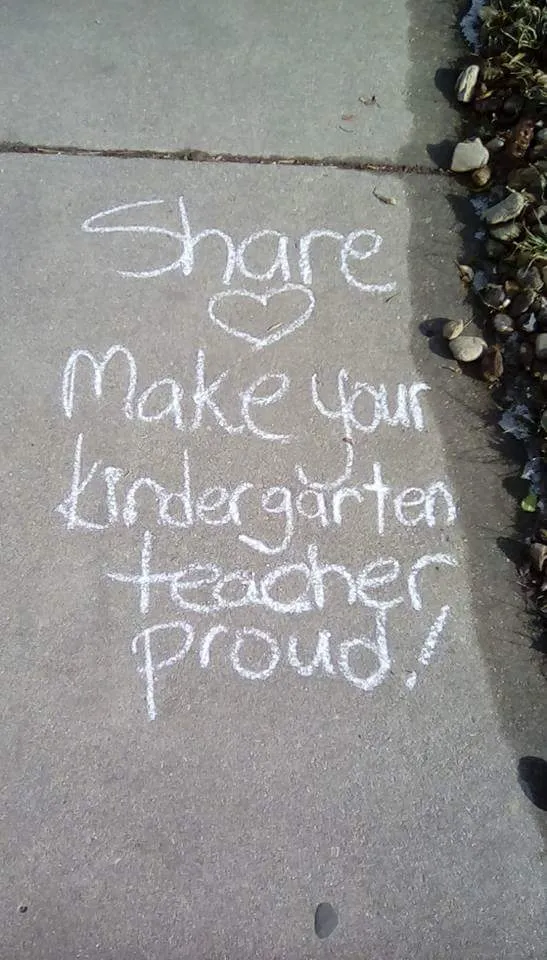 Share
Make your
kindergarten
teacher
proud!